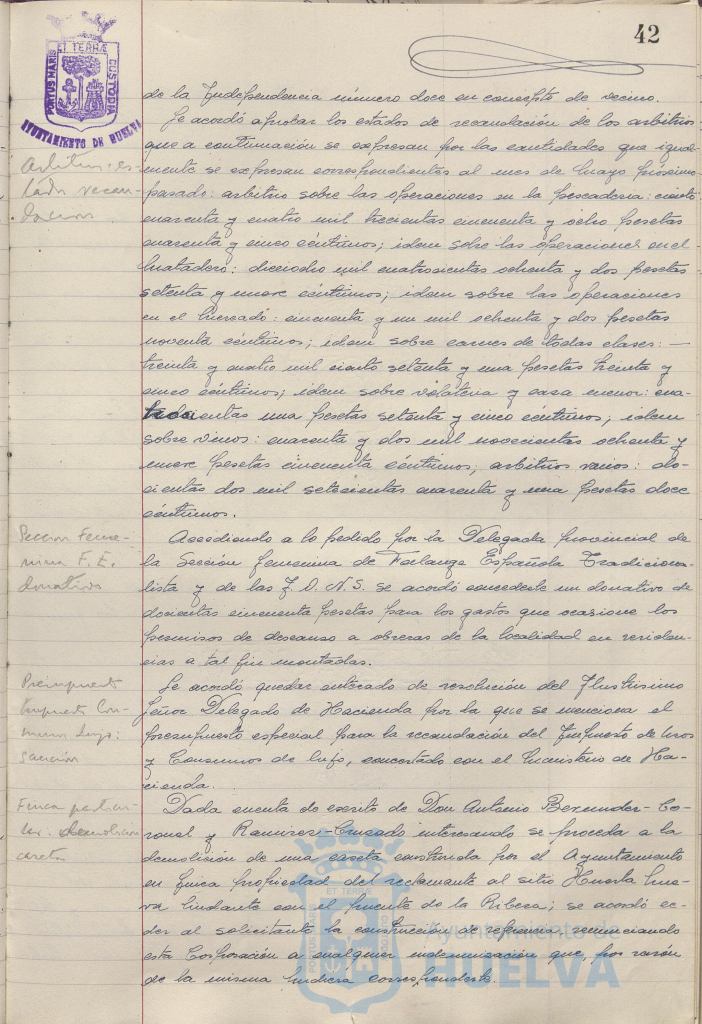 42
ET TERRÆ
PORTUS MARIS
CUSTODIA
AYUNTAMIENTO DE HUELVA
de la Independencia número doce en concepto de vecino.
Se acordó aprobar los estados de recaudación de los arbitrios
Arbitrios es-
que a continuación se expresan por las cantidades que igual-
mente se expresan correspondientes al mes de Mayo próximo
tado recau-
pasado: arbitrio sobre las operaciones en la pescadería: ciento
dacion
cuarenta y cuatro mil trecientas cincuenta y ocho pesetas
cuarenta y cinco céntimos; idem sobre las operaciones en el
Matadero: dieciocho mil cuatrocientas ochenta y dos pesetas
setenta y nueve céntimos; idem sobre las operaciones
en el Mercado: cincuenta y un mil ochenta y dos pesetas
noventa céntimos; idem sobre carnes de todas clases: —
treinta y cuatro mil ciento setenta y una pesetas treinta y
cinco céntimos; idem sobre volateria y caza menor: cua-
trocientas una pesetas setenta y cinco céntimos; idem
sobre vinos: cuarenta y dos mil novecientas ochenta y
nueve pesetas cincuenta céntimos; arbitrios varios: do-
cientas dos mil setecientas cuarenta y una pesetas doce
céntimos.
Seccion Feme-
nina F. E.
donativo
Accediendo a lo pedido por la Delegada provincial de
la Sección femenina de Falange Española Tradiciona-
lista y de las J.O.N.S. se acordó concederle un donativo de
docientas cincuenta pesetas para los gastos que ocasione los
permisos de descanso a obreras de la localidad en residen-
cias a tal fin montadas.
Presupuesto
Impuesto Con-
sumos Lujo:
sanción
Se acordó quedar enterado de resolución del Ilustrísimo
Señor Delegado de Hacienda por la que se menciona el
presupuesto especial para la recaudación del Impuesto de Usos
y Consumos de lujo, concertado con el Ministerio de Ha-
cienda.
Finca particu-
lar. demolicion
caseta
Dada cuenta de escrito de Don Antonio Bermudez-Co-
ronel y Ramirez-Cruzado interesando se proceda a la
demolición de una caseta construida por el Ayuntamiento
en finca propiedad del reclamante al sitio Huerta Nue-
va lindante con el puente de la Ribera; se acordó ce-
der al solicitante la construcción de referencia renunciando
esta Corporación a cualquier indemnización que, por razón
de la misma pudiera corresponderle.
ET TERRÆ
PORTUS MARIS
CUSTODIA
Ayuntamiento de
HUELVA